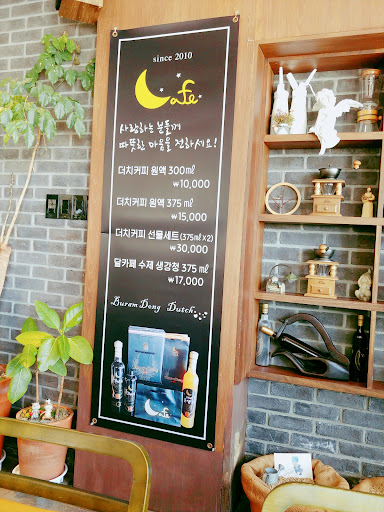 since 2010
Cafe
사랑하는 분들께
따뜻한 마음을 전하세요!
더치커피 원액 300㎖
₩10,000
더치커피 원액 375 ㎖
₩15,000
더치커피 선물세트(375㎖X2)
₩30,000
달카페 수제 생강청 375 ㎖
₩17,000
Buram Dong Dutch